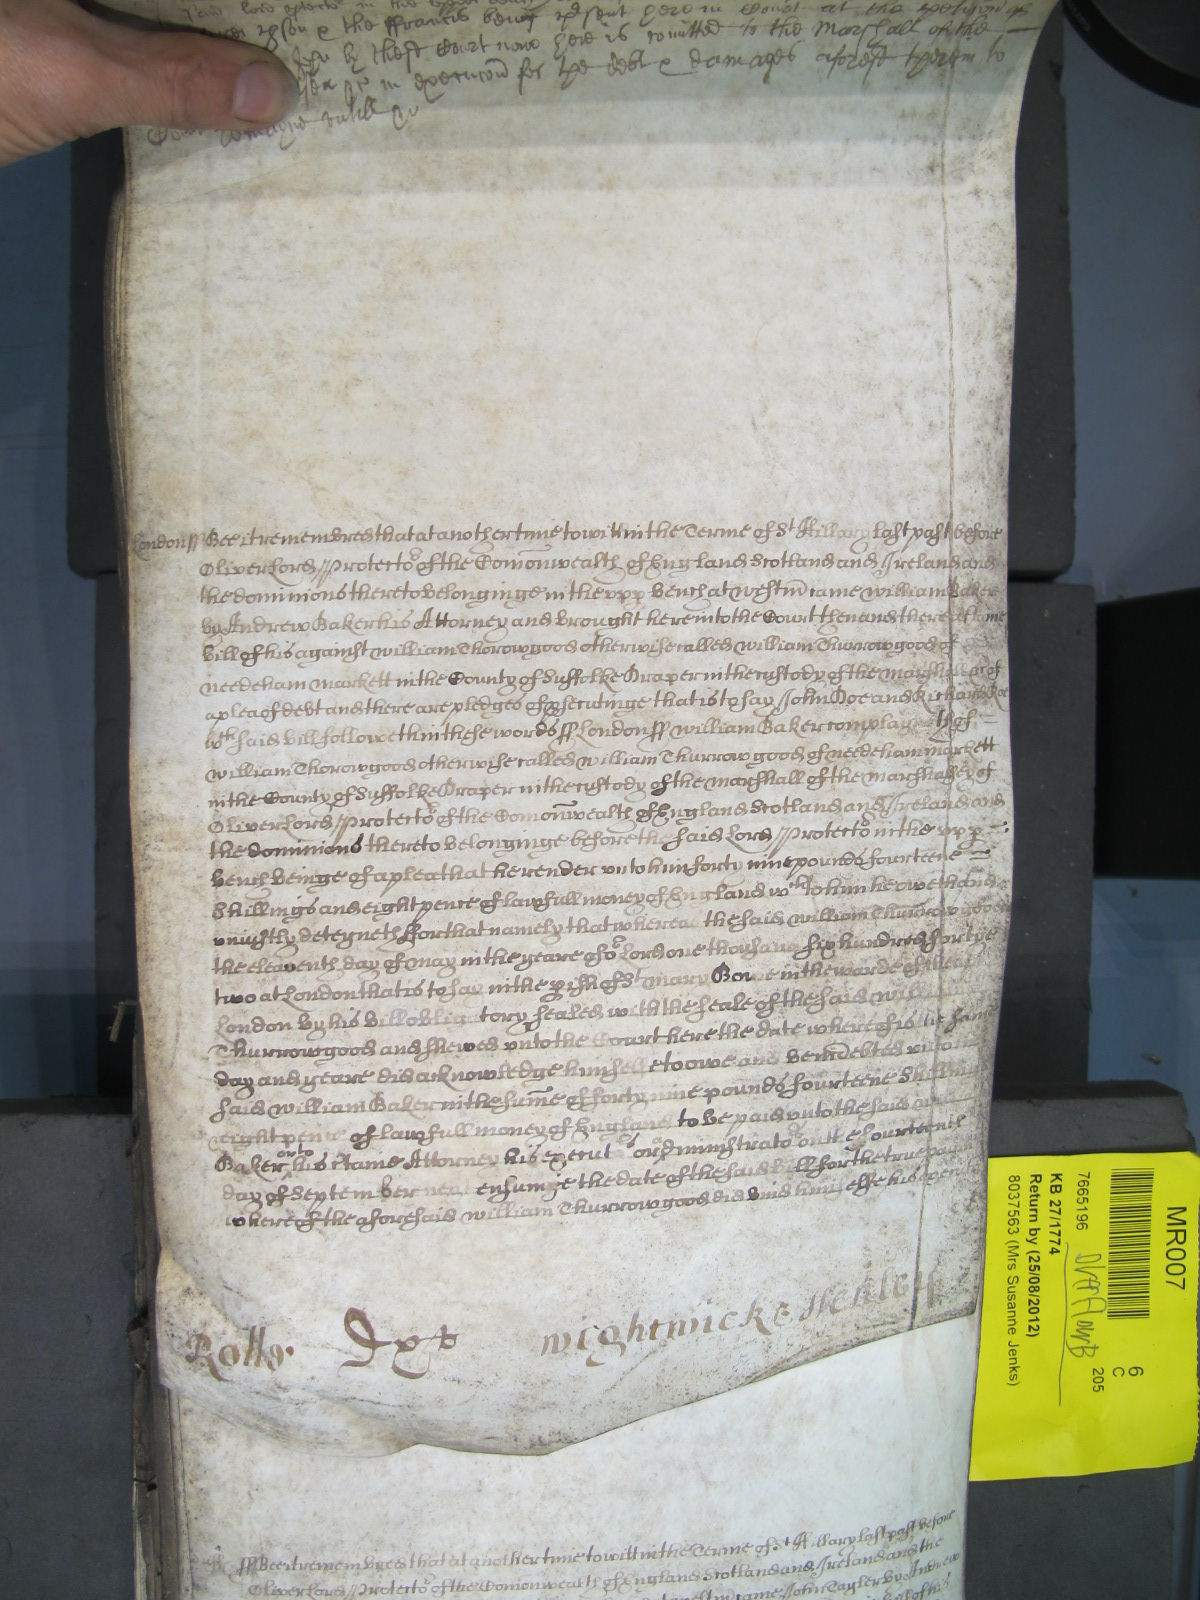 the ffrancis being psent here in Court at the peticion of
by theft Court now here is comitted to the Marshall of the
in execucon for the debt & damages aforesd therein to
London ss Bee it remembred that at another time to witt in the Terme of St Hillary last past before
Oliver Lord Protector of the Comonwealth of England Scotland and Ireland and
the dominions thereto belonginge in the vpp bench at westm came william Baker
by Andrew Baker his Attorney and brought here into the Court then and there a certaine
Bill of his against william Thorowgood otherwise called william Thurrowgood of
needeham markett in the County of Suffolke Draper in the custody of the marshall &c of
a plea of debt and there are pledges of psecutinge that is to say John Doe and Richard Roe
wch said bill followeth in these words ss London ss william Baker complayneth of
william Thorowgood otherwise called william Thurrowgood of needeham markett
in the County of Suffolke Draper in the custody of the marshall of the marshalsey of
Oliver Lord Protector of the Comonwealth of England Scotland and Ireland and
the dominions thereto belonginge before the said Lord Protector in the vpp
bench beinge of a plea that he render vnto him forty nine pounds fourteene
Shillings and eight pence of lawfull money of England wch to him he oweth and
uniustly deteyneth ffor that namely that whereas the said william Thurrowgood
the eleaventh day of may in the yeare of or Lord one thousand six hundred fortye
two at London that is to say in the pish of St mary Bowe in the warde of Cheap
London by his bill obligatory sealed with the seale of the said william
Thurrowgood and shewed vnto the Court here the date whereof is the same
day and yeare did acknowledge himselfe to owe and be indebted vnto the
said william Baker in the sume of forty nine pounds fourteene Shillings
eight pence of lawfull money of England to be paid vnto the said william
Baker or to his certaine Attorney his executrs or administrators on the fourteenth
day of September next ensuinge the date of the said bill for the true paiment
whereof the aforesaid william Thurrowgood did bind himselfe his
Rolls. Dxx wightwicke
ss Bee it remembred that at another time to witt in the Terme of St Hillary last past before
Oliver Lord Protector of the Comonwealth of England Scotland and Ireland and the
came John Tayler by Andrew
MR007
6
C
205
7665196
KB 27/1774
Return by (25/08/2012)
8037563 (Mrs Susanne Jenks)